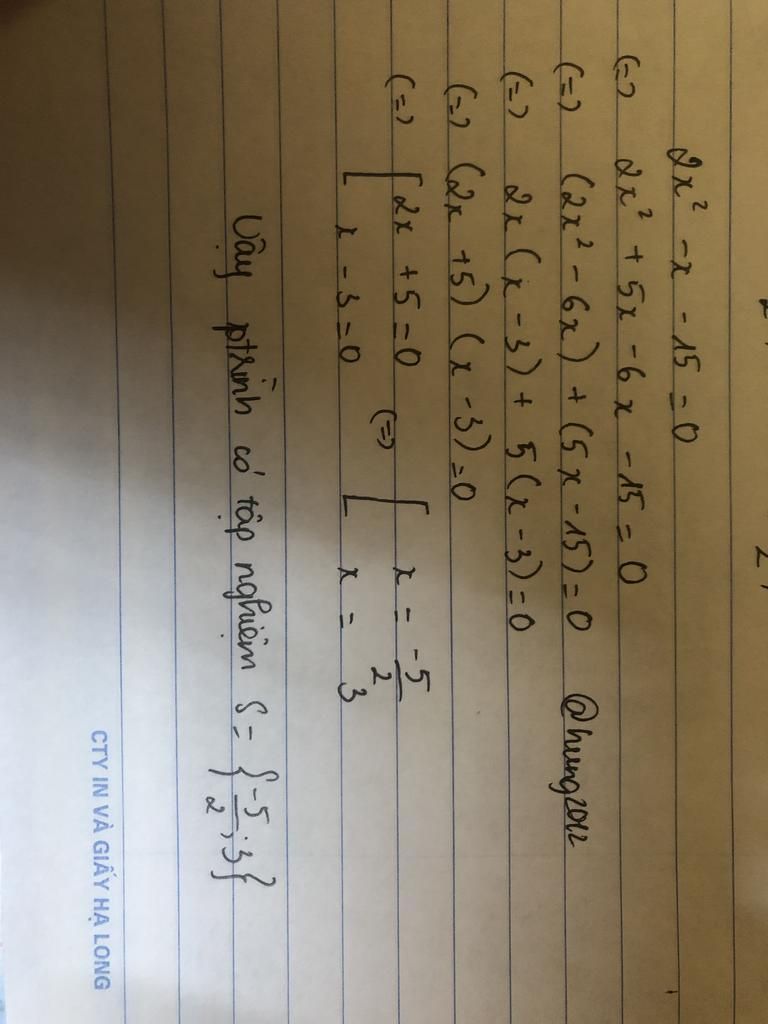 2x² - x - 15 = 0
(=) 2x² + 5x - 6x - 15 = 0
(=) (2x² - 6x) + (5x - 15) = 0 @hung2012
(=) 2x(x - 3) + 5(x - 3) = 0
(=) (2x + 5)(x - 3) = 0
(=) [2x + 5 = 0 (=) [x = -5/2
[x - 3 = 0 [x = 3
Vậy ptrình có tập nghiệm S = {-5/2; 3}
CTY IN VÀ GIẤY HẠ LONG